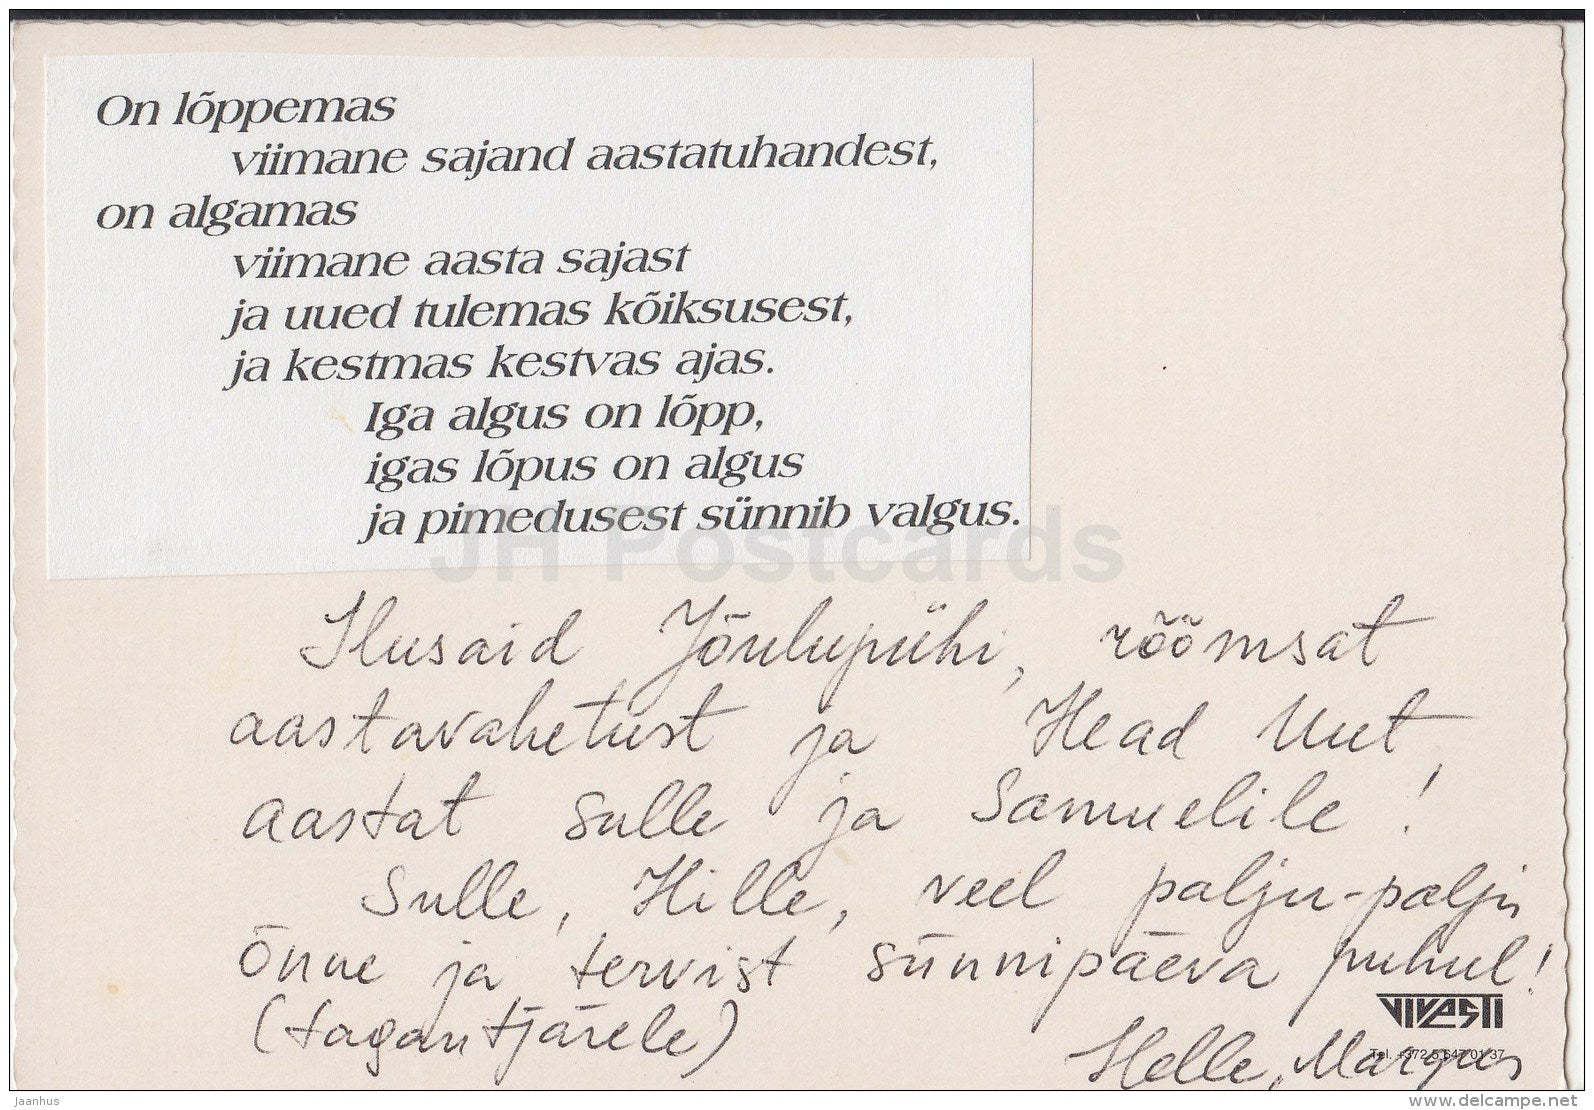 On lõppemas
viimane sajand aastatuhandest,
on algamas
viimane aasta sajast
ja uued tulemas kõiksusest,
ja kestmas kestvas ajas.
Iga algus on lõpp,
igas lõpus on algus
ja pimedusest sünnib valgus.
JH Postcards
Ilusaid Jõulupühi, rõõmsat
aastavahetust ja Head Uut
aastat sulle ja Samuelile!
Sulle, Hille, veel palju-palju
õnne ja tervist sünnipäeva puhul!
(tagantjärele)
VIVASTI
Tel. +372 5 647 01 37
Helle, Margus
jaanhus
www.delcampe.net